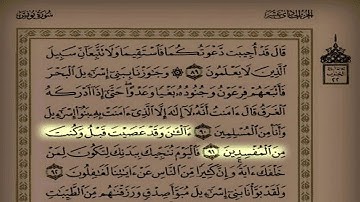 الجزء الحادي عشر
سورة يونس
قَالَ قَدْ أُجِيبَت دَّعْوَتُكُمَا فَٱسْتَقِيمَا وَلَا تَتَّبِعَآنِّ سَبِيلَ
ٱلَّذِينَ لَا يَعْلَمُونَ ٨٩ وَجَٰوَزْنَا بِبَنِىٓ إِسْرَٰٓءِيلَ ٱلْبَحْرَ
فَأَتْبَعَهُمْ فِرْعَوْنُ وَجُنُودُهُۥ بَغْيًا وَعَدْوًا حَتَّىٰٓ إِذَآ أَدْرَكَهُ
ٱلْغَرَقُ قَالَ ءَامَنتُ أَنَّهُۥ لَآ إِلَٰهَ إِلَّا ٱلَّذِىٓ ءَامَنَتْ بِهِۦ بَنُوٓا۟ إِسْرَٰٓءِيلَ
وَأَنَا۠ مِنَ ٱلْمُسْلِمِينَ ٩٠ ءَآلْـَٰٔنَ وَقَدْ عَصَيْتَ قَبْلُ وَكُنتَ
مِنَ ٱلْمُفْسِدِينَ ٩١ فَٱلْيَوْمَ نُنَجِّيكَ بِبَدَنِكَ لِتَكُونَ لِمَنْ
خَلْفَكَ ءَايَةً وَإِنَّ كَثِيرًا مِّنَ ٱلنَّاسِ عَنْ ءَايَٰتِنَا لَغَٰفِلُونَ ٩٢
وَلَقَدْ بَوَّأْنَا بَنِىٓ إِسْرَٰٓءِيلَ مُبَوَّأَ صِدْقٍ وَرَزَقْنَٰهُم مِّنَ ٱلطَّيِّبَٰتِ